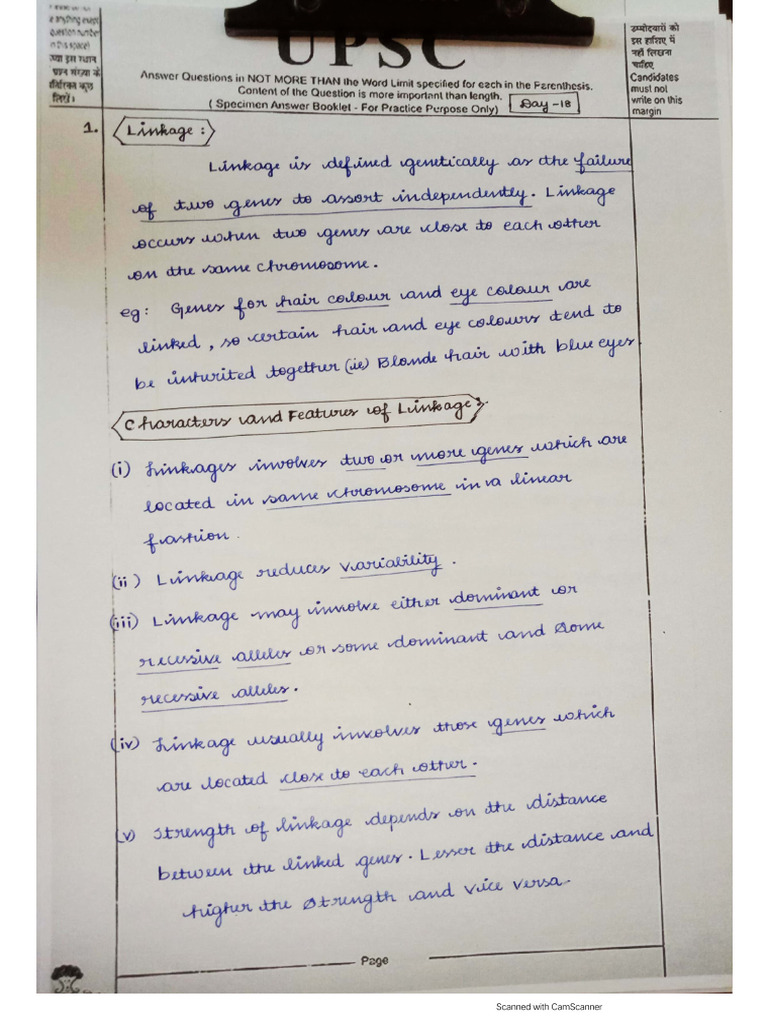 anything except
question number
in this space)
UPSC
उम्मीदवारों को
इस हाशिए में
नहीं लिखना
चाहिए
Candidates
must not
write on this
margin
Answer Questions in NOT MORE THAN the Word Limit specified for each in the Parenthesis.
Content of the Question is more important than length.
( Specimen Answer Booklet - For Practice Purpose Only)
Day -18
1. Linkage :
Linkage is defined genetically as the failure
of two genes to assort independently. Linkage
occurs when two genes are close to each other
on the same chromosome.
eg: Genes for hair colour and eye colour are
linked, so certain hair and eye colours tend to
be inherited together (ie) Blonde hair with blue eyes
Characters and Features of Linkage :
(i) Linkages involves two or more genes which are
located in same chromosome in a linear
fashion.
(ii) Linkage reduces variability.
(iii) Linkage may involve either dominant or
recessive alleles or some dominant and some
recessive alleles.
(iv) Linkage usually involves those genes which
are located close to each other.
(v) Strength of linkage depends on the distance
between the linked genes. Lesser the distance and
higher the strength and vice versa.
Page
Scanned with CamScanner